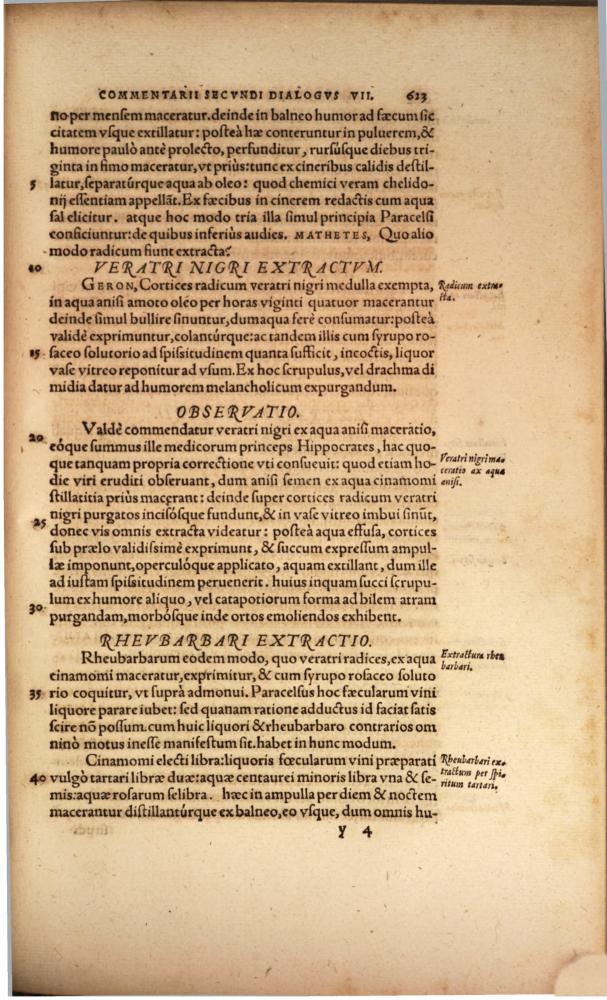 COMMENTARII SECVNDI DIALOGVS VII. 623
no per mensem maceratur. deinde in balneo humor ad fæcum sic
citatem vsque extillatur: posteà hæ conteruntur in puluerem, &
humore paulò antè prolecto, perfunditur, rursúsque diebus tri-
ginta in fimo maceratur, vt priùs: tunc ex cineribus calidis destil-
5 latur, separatúrque aqua ab oleo: quod chemici veram chelido-
nij essentiam appellāt. Ex fæcibus in cinerem redactis cum aqua
sal elicitur. atque hoc modo tria illa simul principia Paracelsi
conficiuntur: de quibus inferiùs audies. MATHETES, Quo alio
modo radicum fiunt extracta?
10 VERATRI NIGRI EXTRACTVM.
GERON, Cortices radicum veratri nigri medulla exempta, Radicum extra-
in aqua anisi amoto oleo per horas viginti quatuor macerantur cta.
deinde simul bullire sinuntur, dum aqua ferè consumatur: posteà
validè exprimuntur, colantúrque: ac tandem illis cum syrupo ro-
15 saceo solutorio ad spissitudinem quanta sufficit, incoctis, liquor
vase vitreo reponitur ad vsum. Ex hoc scrupulus, vel drachma di
midia datur ad humorem melancholicum expurgandum.
OBSERVATIO.
Valdè commendatur veratri nigri ex aqua anisi maceratio,
20 eóque summus ille medicorum princeps Hippocrates, hac quo-
que tanquam propria correctione vti consueuit: quod etiam ho- Veratri nigri ma-
die viri eruditi obseruant, dum anisi semen ex aqua cinamomi ceratio ax aqua
stillatitia priùs macerant: deinde super cortices radicum veratri anisi.
nigri purgatos incisósque fundunt, & in vase vitreo imbui sinūt,
25 donec vis omnis extracta videatur: posteà aqua effusa, cortices
sub prælo validissimè exprimunt, & succum expressum ampul-
læ imponunt, operculóque applicato, aquam extillant, dum ille
ad iustam spissitudinem peruenerit. huius inquam succi scrupu-
lum ex humore aliquo, vel catapotiorum forma ad bilem atram
30 purgandam, morbósque inde ortos emoliendos exhibent.
RHEVBARBARI EXTRACTIO.
Rheubarbarum eodem modo, quo veratri radices, ex aqua Extractum rheu
cinamomi maceratur, exprimitur, & cum syrupo rosaceo soluto barbari.
35 rio coquitur, vt suprà admonui. Paracelsus hoc fæcularum vini
liquore parare iubet: sed quanam ratione adductus id faciat satis
scire nō possum. cum huic liquori & rheubarbaro contrarios om
ninò motus inesse manifestum sit. habet in hunc modum.
Cinamomi electi libra: liquoris fœcularum vini præparati Rheubarbari ex-
40 vulgò tartari libræ duæ: aquæ centaurei minoris libra vna & se- tractum per spi-
mis: aquæ rosarum selibra. hæc in ampulla per diem & noctem ritum tartari.
macerantur distillantúrque ex balneo, eo vsque, dum omnis hu-
y 4